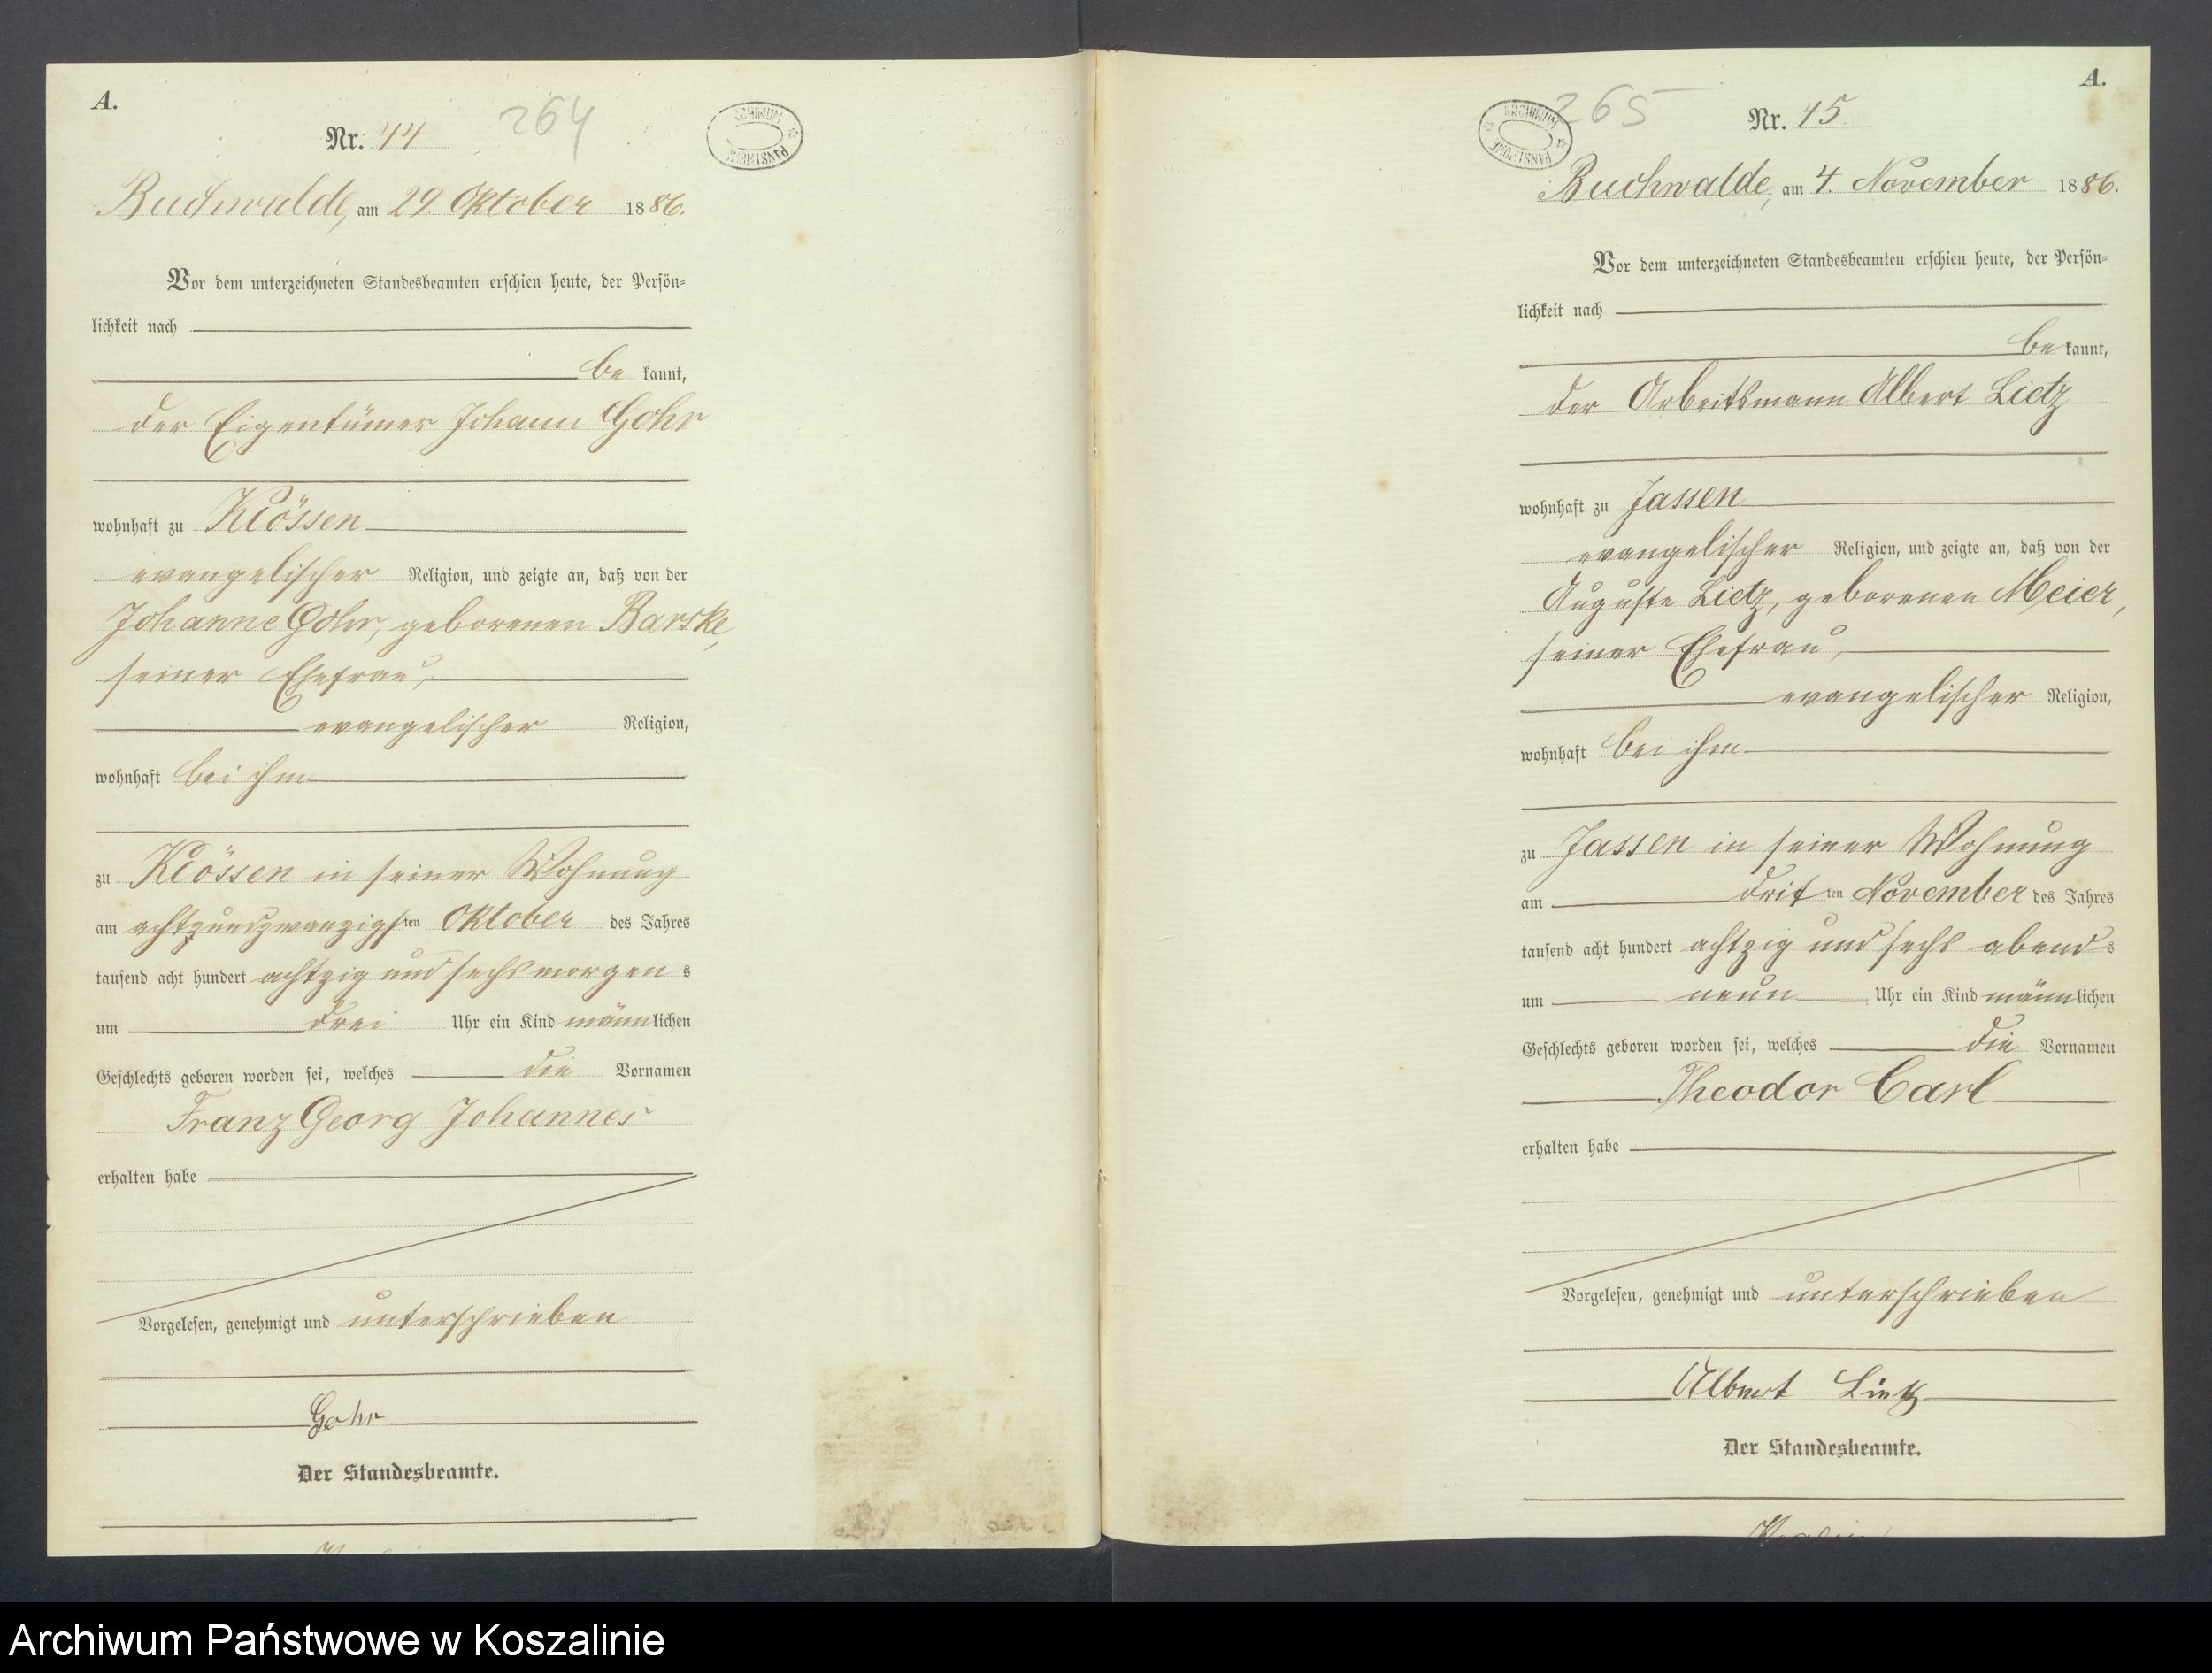 A.
Nr. 44
264
ARCHIWUM PAŃSTWOWE
Buchwalde, am 29. Oktober 1886.
Vor dem unterzeichneten Standesbeamten erschien heute, der Persön=
lichkeit nach
be kannt,
der Eigentümer Johann Gohr
wohnhaft zu Klössen
evangelischer Religion, und zeigte an, daß von der
Johanne Gohr, geborenen Barske,
seiner Ehefrau,
evangelischer Religion,
wohnhaft bei ihm
zu Klössen in seiner Wohnung
am achtzundzwanzigsten Oktober des Jahres
tausend acht hundert achtzig und sechs morgens
um drei Uhr ein Kind männlichen
Geschlechts geboren worden sei, welches die Vornamen
Franz Georg Johannes
erhalten habe
Vorgelesen, genehmigt und unterschrieben
Gohr
Der Standesbeamte.
A.
Nr. 45
265
ARCHIWUM PAŃSTWOWE
Buchwalde, am 4. November 1886.
Vor dem unterzeichneten Standesbeamten erschien heute, der Persön=
lichkeit nach
be kannt,
der Arbeitsmann Albert Lietz
wohnhaft zu Jassen
evangelischer Religion, und zeigte an, daß von der
Auguste Lietz, geborenen Meier,
seiner Ehefrau,
evangelischer Religion,
wohnhaft bei ihm
zu Jassen in seiner Wohnung
am dritten November des Jahres
tausend acht hundert achtzig und sechs abends
um neun Uhr ein Kind männlichen
Geschlechts geboren worden sei, welches die Vornamen
Theodor Carl
erhalten habe
Vorgelesen, genehmigt und unterschrieben
Albert Lietz
Der Standesbeamte.
Archiwum Państwowe w Koszalinie